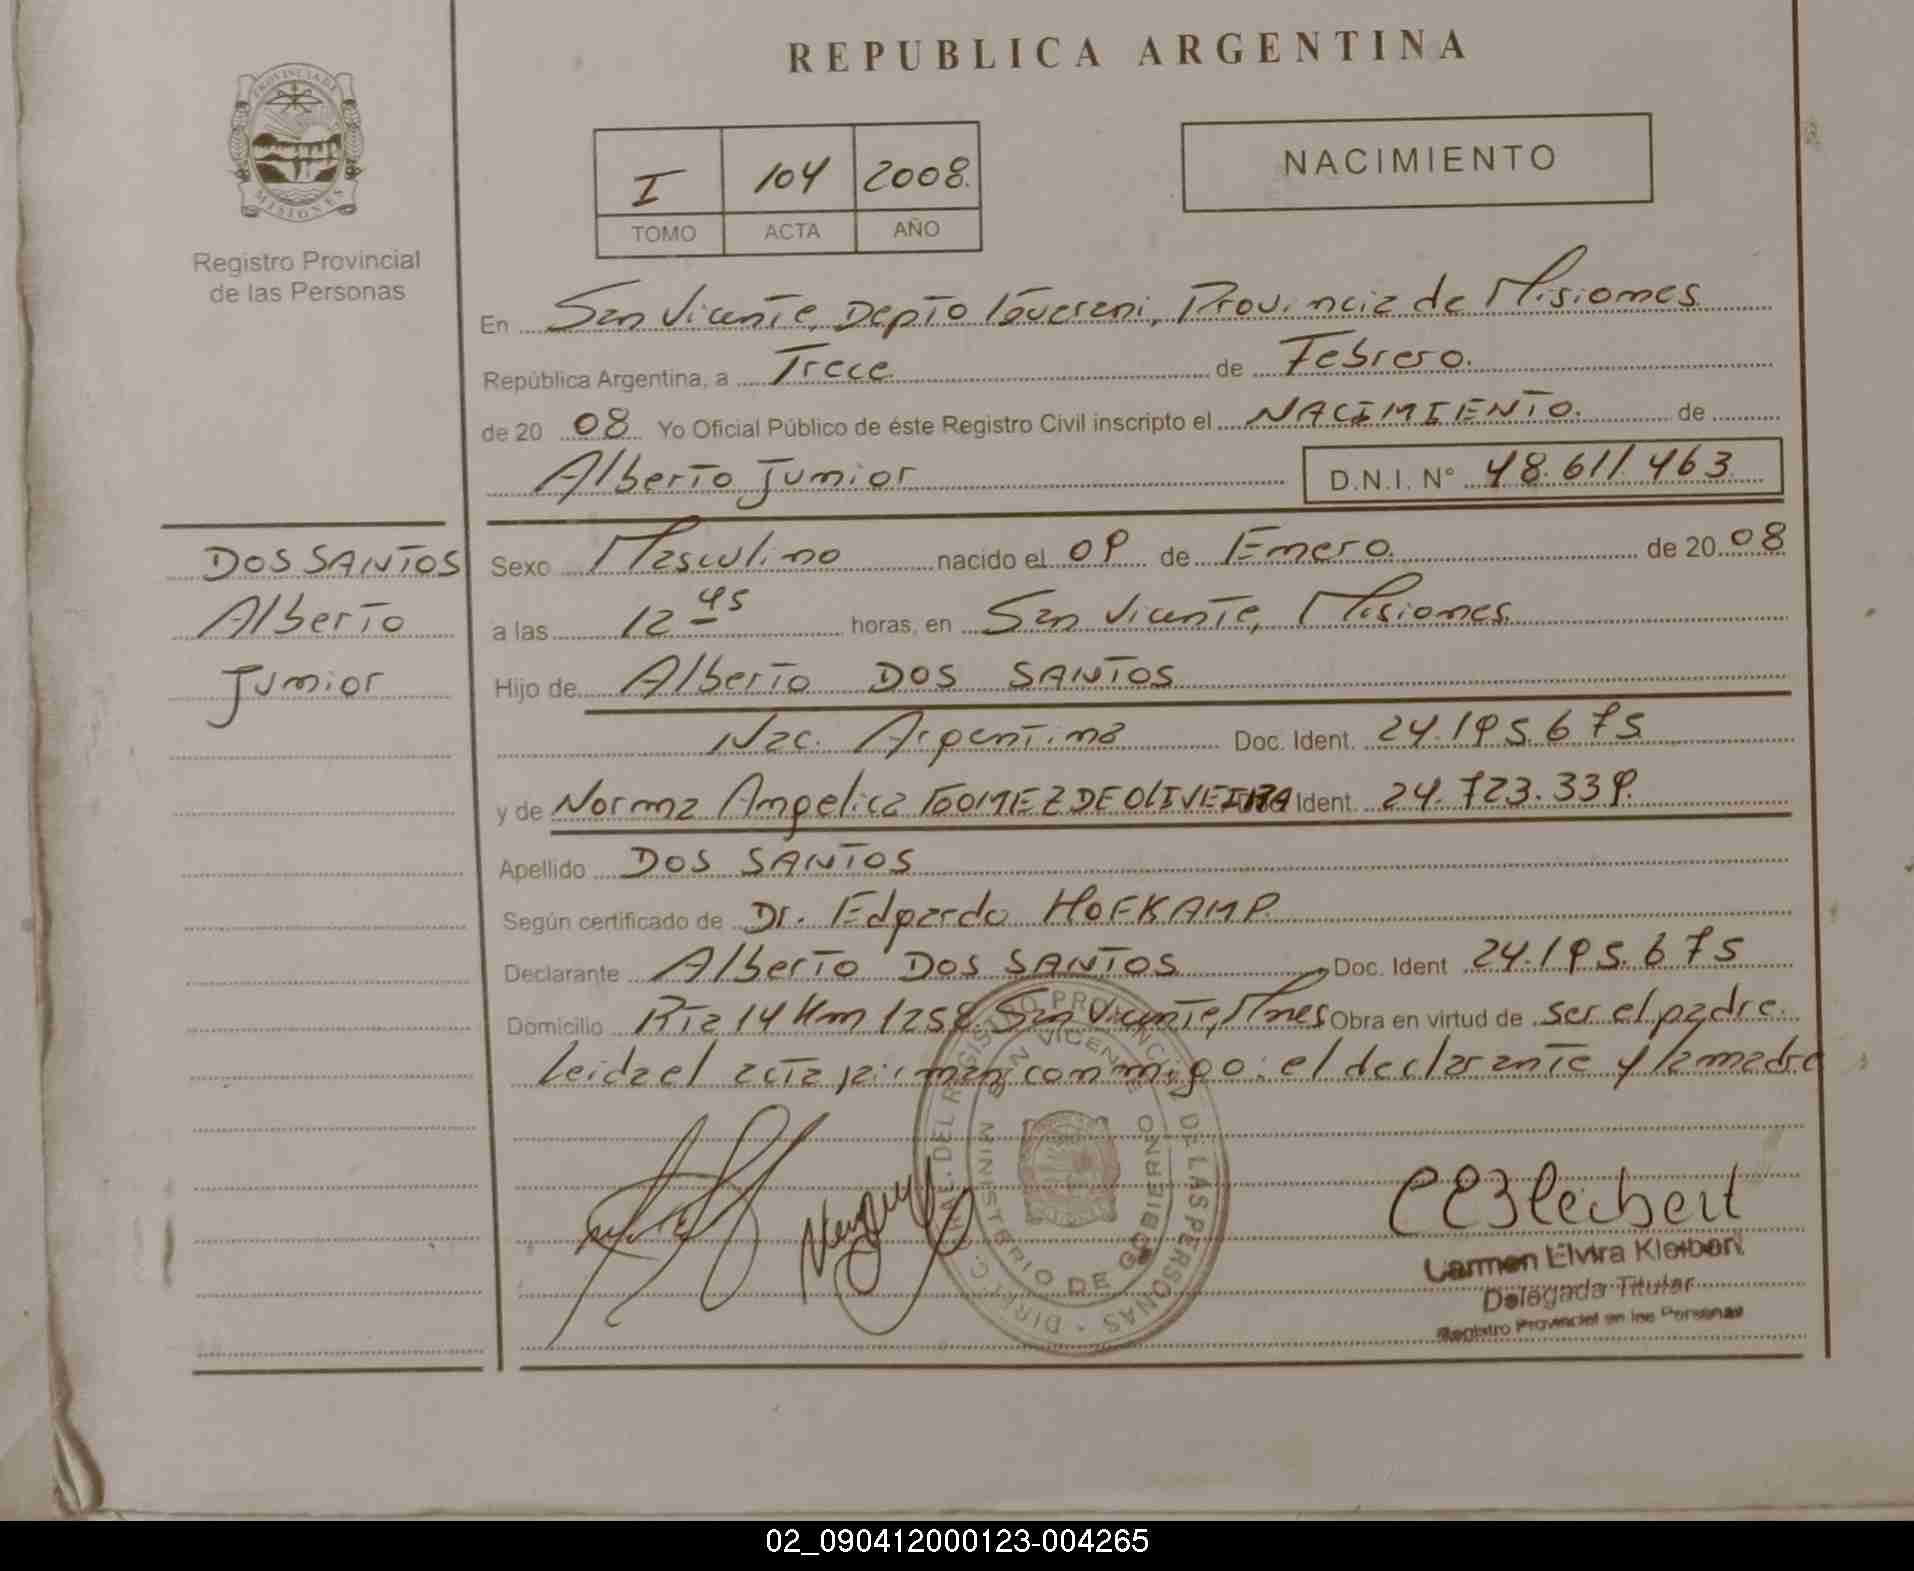 REPUBLICA ARGENTINA
PROVINCIA DE MISIONES
Registro Provincial
de las Personas
I 104 2008.
TOMO ACTA AÑO
NACIMIENTO
En San Vicente, Depto Guarani, Provincia de Misiones
República Argentina, a Trece de Febrero.
de 20 08 Yo Oficial Público de éste Registro Civil inscripto el NACIMIENTO. de
Alberto Junior D.N.I. N° 48.611.463
DOS SANTOS
Alberto
Junior
Sexo Masculino nacido el 09 de Enero. de 20 08
a las 12 45 horas, en San Vicente, Misiones.
Hijo de Alberto DOS SANTOS
Nac. Argentina Doc. Ident. 24.195.675
y de Norma Angelica GOMEZ DE OLIVEIRA Ident. 24.723.339.
Apellido DOS SANTOS
Según certificado de Dr. Edgardo HOFKAMP.
Declarante Alberto DOS SANTOS Doc. Ident 24.195.675
Domicilio Rta 14 Km 1258. San Vicente, Mnes Obra en virtud de ser el padre.
Leida el acta firman conmigo: el declarante y la madre
DIREC. GRAL. DEL REGISTRO PROVINCIAL DE LAS PERSONAS
SAN VICENTE
MINISTERIO DE GOBIERNO
CEKleibert
Carmen Elvira Kleibert
Delegada Titular
Registro Provincial de las Personas
02_090412000123-004265